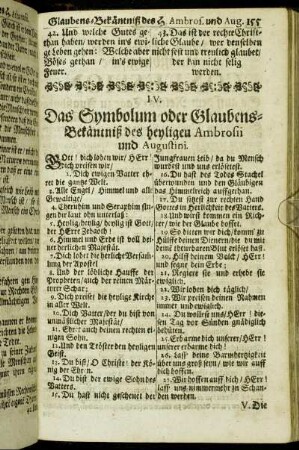 Glaubens-Bekäntniß des H. Ambros. und Aug. 155
42. Und welche Gutes ge-
than haben, werden ins ewi-
ge Leben gehen: Welche aber
Böses gethan / in's ewige
Feuer.
43. Das ist der rechte Christ-
liche Glaube / wer denselben
nicht fest und treulich glaubet/
der kan nicht selig
werden.
IV.
Das Symbolum oder Glaubens-
Bekäntniß des heyligen Ambrosii
und Augustini.
Gott / dich loben wir / HErr
Dich preisen wir /
2. Dich ewigen Vatter eh-
ret die gantze Welt.
3. Alle Engel / Himmel und alle
Gewaltige /
4. Cherubim und Seraphim sin-
gen dir laut ohn unterlaß:
5. Heylig / heilig / heylig ist Gott /
der HErr Zebaoth!
6. Himmel und Erde ist voll dei-
ner herrlichen Majestät.
7. Dich lobet die herrliche Versam-
lung der Apostel
8. Und der löbliche Hauffe der
Propheten / auch der reinen Mär-
tyrer Schar.
9. Dich preiset die heylige Kirche
in aller Welt.
10. Dich Vatter / der du bist von
unaußsprechlicher Majestät /
11. Ehret auch deinen rechten ei-
nigen Sohn,
12. Und den Tröster den heyligen
Geist.
13. Du bist / O Christe! der Kö-
nig der Ehren.
14. Du bist der ewige Sohn des
Vatters.
15. Du hast nicht gescheuet der der
Jungfrauen Leib / da du Mensch
wurdest und uns erlösetest.
16. Du hast des Todes Stachel
überwunden und den Gläubigen
das Himmelreich aufgethan.
17. Du sitzest zur rechten Hand
Gottes in Herrlichkeit des Vatters
18. Und wirst kommen ein Rich-
ter / wie der Glaube hoffet.
19. So bitten wir dich denn, komm zu
Hülffe deinen Dienern / die du mit
deinem theuren Blut erlöset hast.
20. Hilff deinem Volck / HErr!
und segne dein Erbe;
21. Regiere sie und erhebe sie
ewiglich.
22. Wir loben dich täglich /
23. Wir preisen deinen Nahmen
immer und ewiglich.
24. Du wollest uns / HErr! die-
sen Tag vor Sünden gnädiglich
behüten.
25. Erbarme dich unserer / HErr!
unserer erbarme dich!
26. Laß deine Barmhertzigkeit
über uns groß seyn / wie wir auff
dich hoffen.
27. Wir hoffen auff dich / HErr!
laß uns nimmermehr zu Schan-
den
V. Die